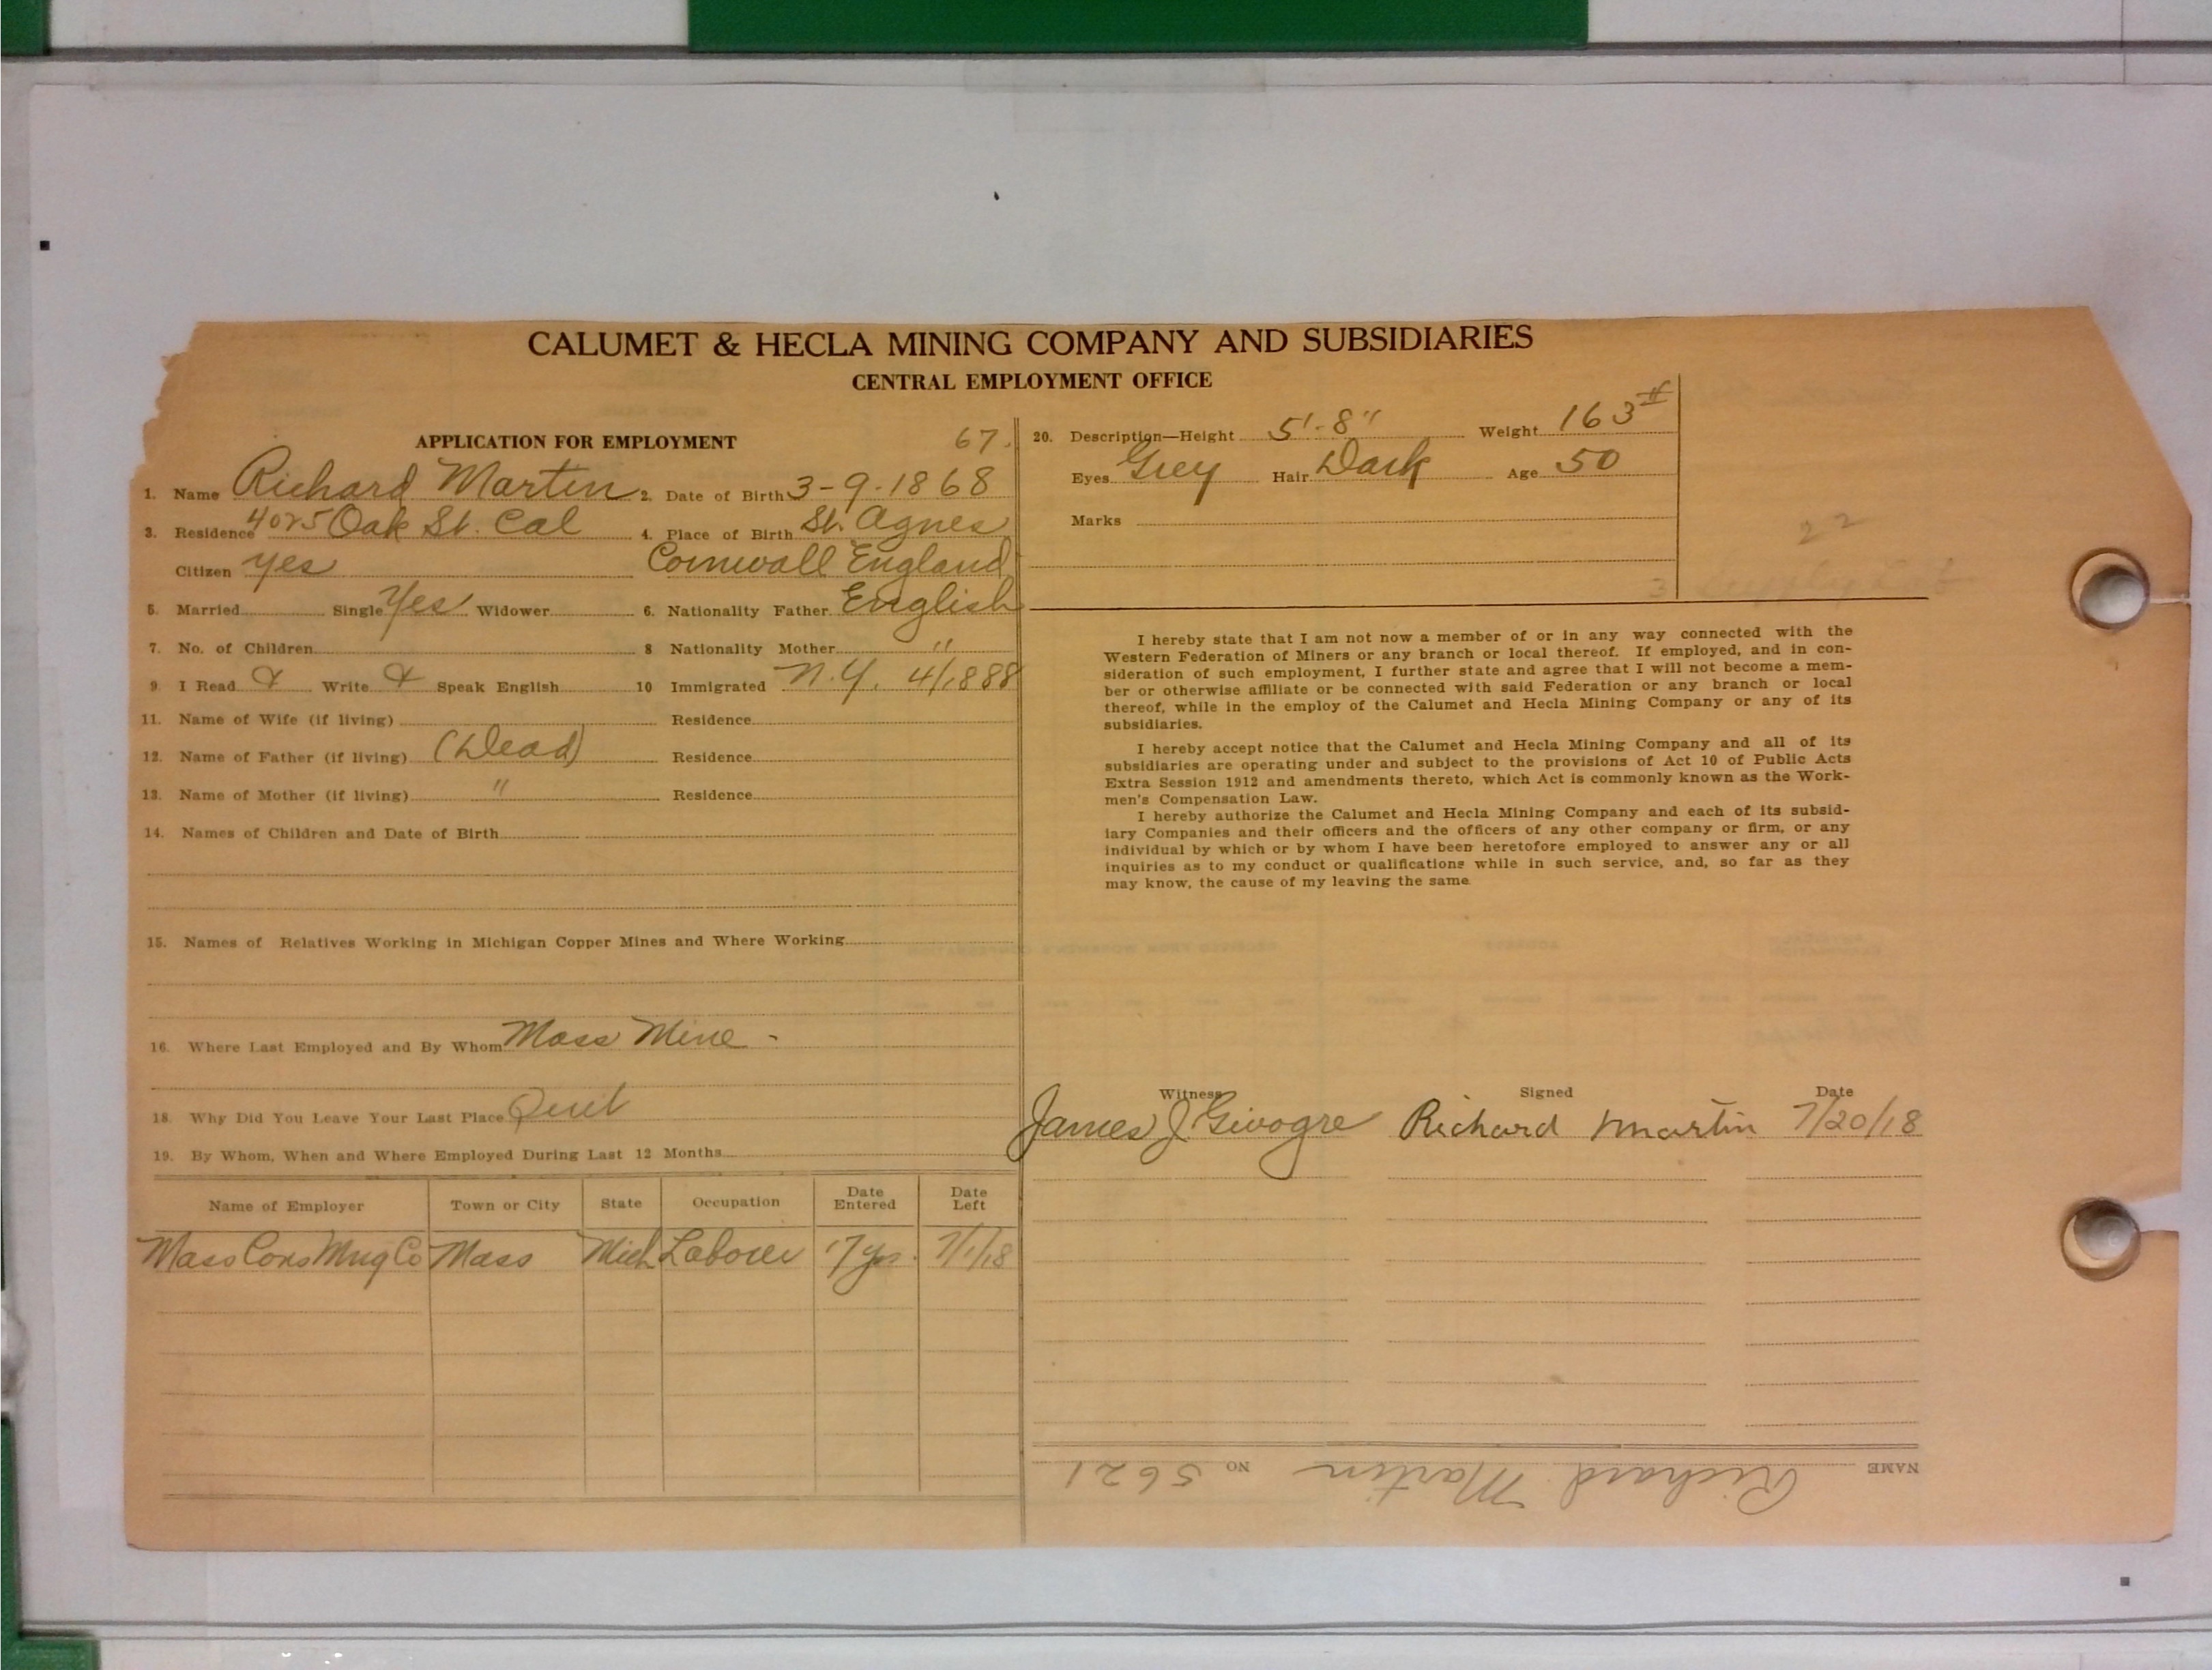 CALUMET & HECLA MINING COMPANY AND SUBSIDIARIES
CENTRAL EMPLOYMENT OFFICE
APPLICATION FOR EMPLOYMENT 67.
1. Name Richard Martin 2. Date of Birth 3-9-1868
3. Residence 4025 Oak St. Cal 4. Place of Birth St. Agnes
Citizen yes Cornwall England
5. Married Single Yes Widower 6. Nationality Father English
7. No. of Children 8 Nationality Mother "
9. I Read Write Speak English 10 Immigrated N.Y. 4/1888
11. Name of Wife (if living) Residence
12. Name of Father (if living) (Dead) Residence
13. Name of Mother (if living) " Residence
14. Names of Children and Date of Birth
15. Names of Relatives Working in Michigan Copper Mines and Where Working
16. Where Last Employed and By Whom Mass Mine -
18. Why Did You Leave Your Last Place Quit
19. By Whom, When and Where Employed During Last 12 Months
Name of Employer Town or City State Occupation Date Entered Date Left
Mass Cons Mng Co Mass Mich Laborer 17 yrs. 7/1/18
20. Description—Height 5'-8" Weight 163#
Eyes Grey Hair Dark Age 50
Marks
22
I hereby state that I am not now a member of or in any way connected with the
Western Federation of Miners or any branch or local thereof. If employed, and in con-
sideration of such employment, I further state and agree that I will not become a mem-
ber or otherwise affiliate or be connected with said Federation or any branch or local
thereof, while in the employ of the Calumet and Hecla Mining Company or any of its
subsidiaries.
I hereby accept notice that the Calumet and Hecla Mining Company and all of its
subsidiaries are operating under and subject to the provisions of Act 10 of Public Acts
Extra Session 1912 and amendments thereto, which Act is commonly known as the Work-
men's Compensation Law.
I hereby authorize the Calumet and Hecla Mining Company and each of its subsid-
iary Companies and their officers and the officers of any other company or firm, or any
individual by which or by whom I have been heretofore employed to answer any or all
inquiries as to my conduct or qualifications while in such service, and, so far as they
may know, the cause of my leaving the same
Witness Signed Date
James J Givogre Richard Martin 7/20/18
NAME Richard Martin NO 5621